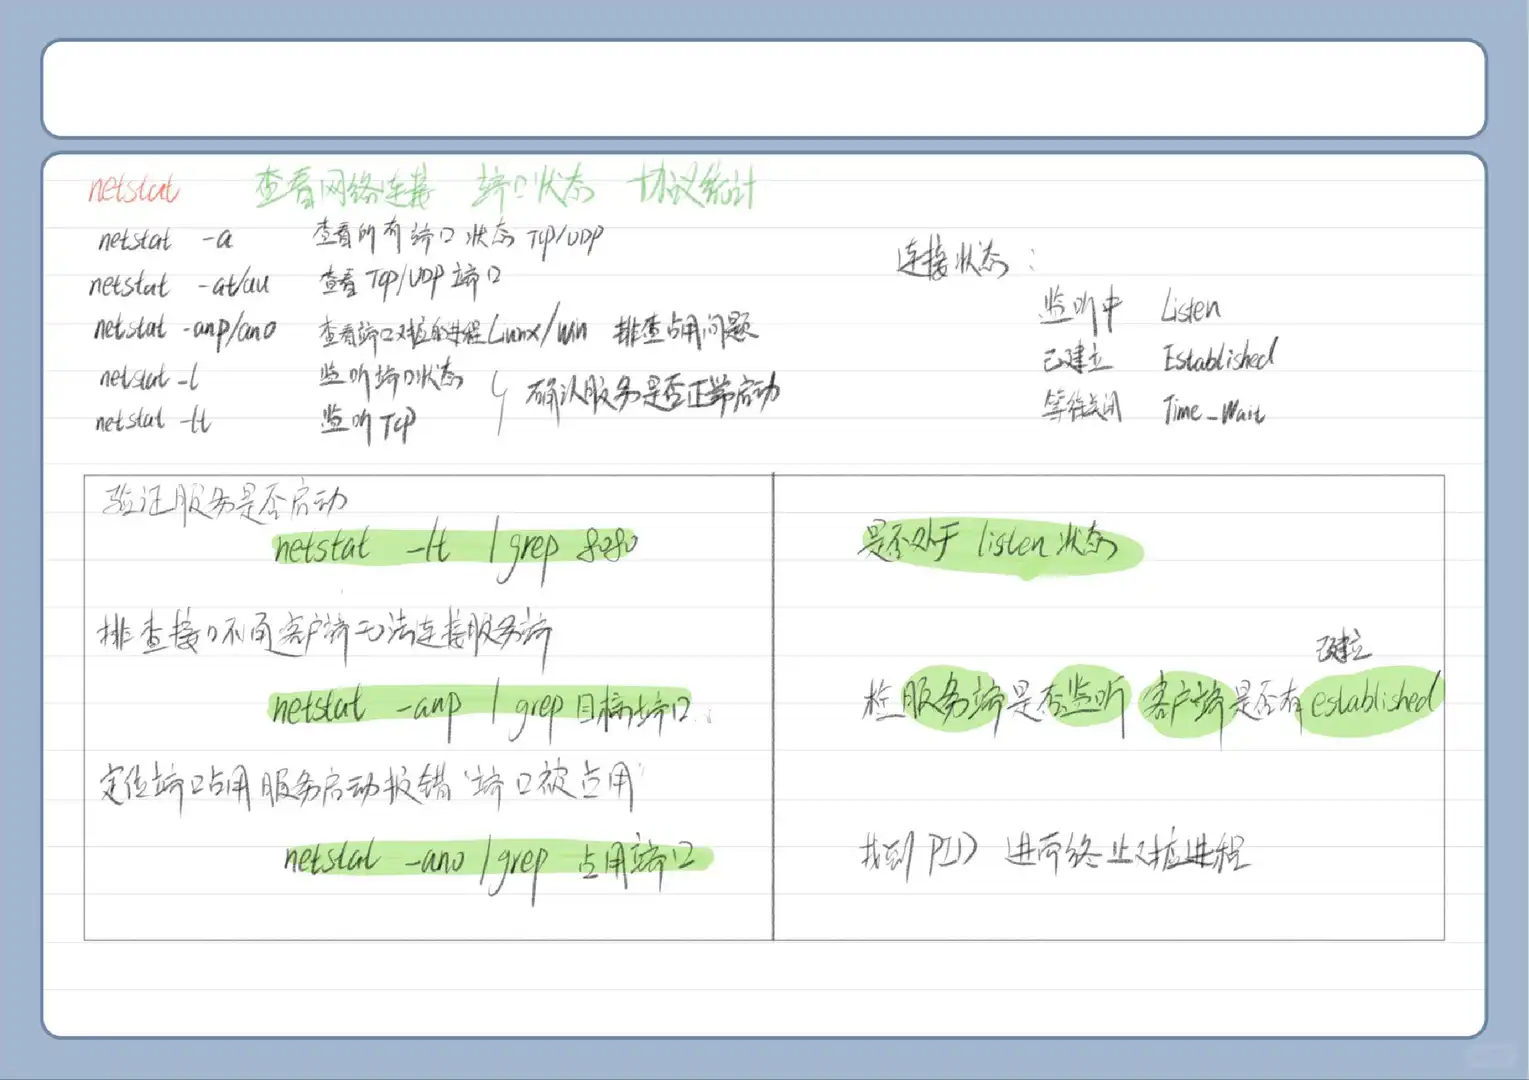 netstat 查看网络连接 端口状态 协议统计
netstat -a 查看所有端口状态 TCP/UDP
netstat -at/au 查看 TCP/UDP 端口
netstat -anp/ano 查看端口对应的进程 Linux/win 排查占用问题
netstat -l 监听端口状态
确认服务是否正常启动
netstat -lt 监听 TCP
连接状态:
监听中 Listen
已建立 Established
等待关闭 Time_Wait
验证服务是否启动
netstat -lt | grep 8080
是否处于 listen 状态
排查接口不通 客户端无法连接服务端
netstat -anp | grep 目标端口
已建立
检 服务端是否监听 客户端是否有 established
定位端口占用 服务启动报错"端口被占用"
netstat -ano | grep 占用端口
找到 PID 进而终止对应进程